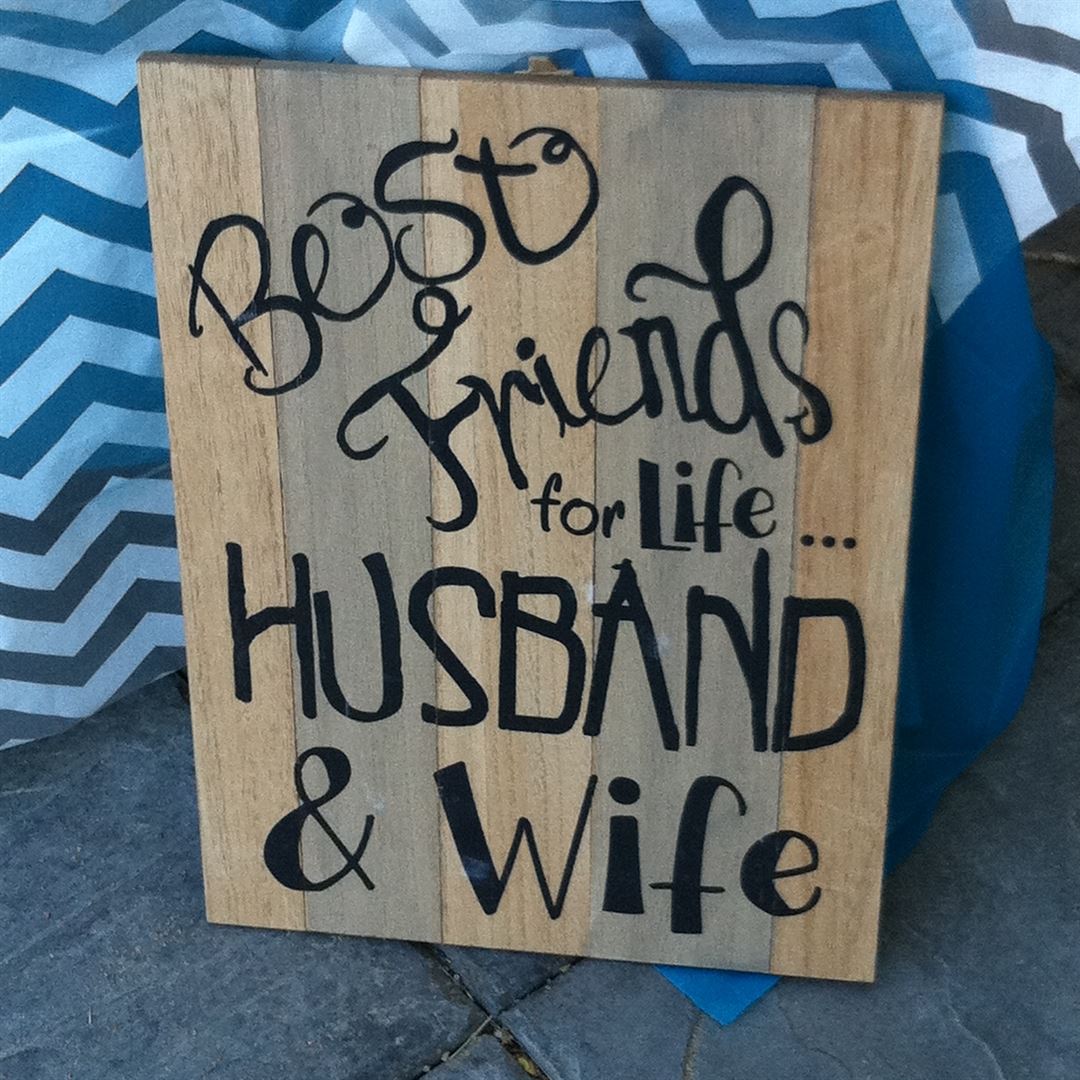 Best
Friends
for Life...
HUSBAND
& Wife